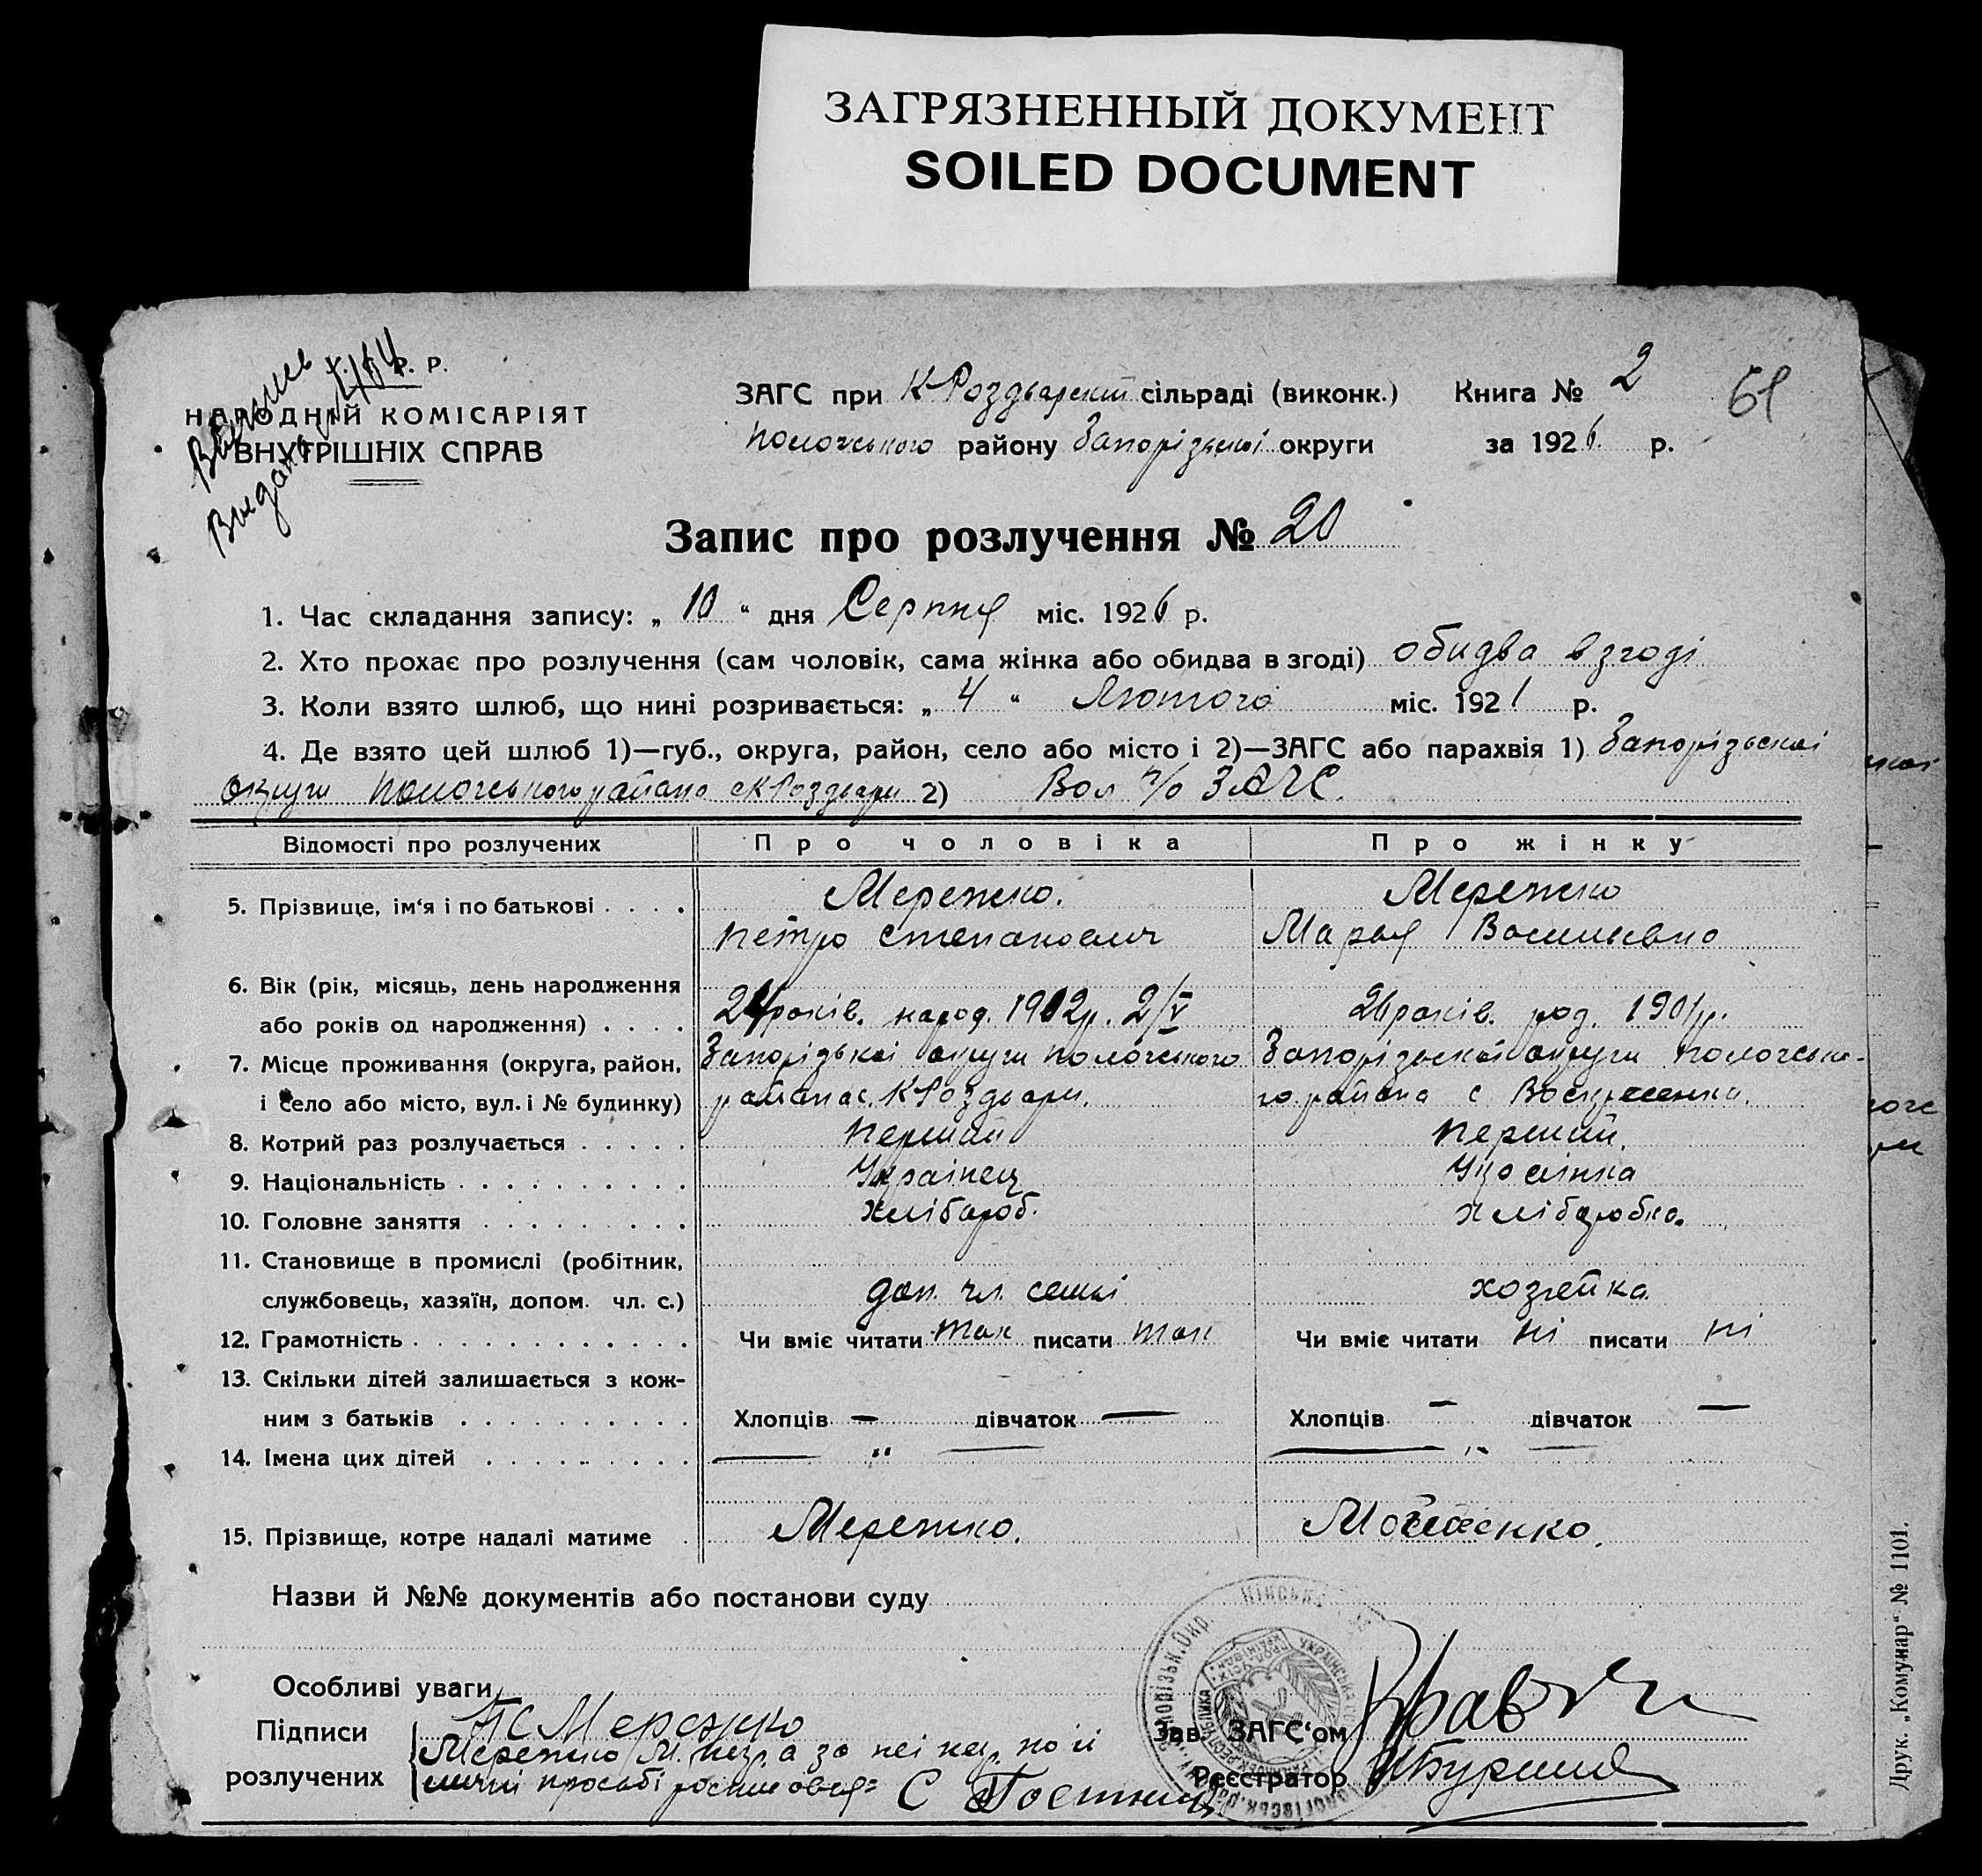 ЗАГРЯЗНЕННЫЙ ДОКУМЕНТ
SOILED DOCUMENT
Р.
НАРОДНІЙ КОМІСАРІЯТ
ВНУТРІШНІХ СПРАВ
ЗАГС при К-Роздорскій сільраді (виконк.) Книга № 2
61
Пологського району Запорізької округи за 1926 р.
Запис про розлучення № 20
1. Час складання запису: „ 10 “ дня Серпня міс. 1926 р.
2. Хто прохає про розлучення (сам чоловік, сама жінка або обидва в згоді) обидва в згоді
3. Коли взято шлюб, що нині розривається: „ 4 “ Лютого міс. 1921 р.
4. Де взято цей шлюб 1)—губ., округа, район, село або місто і 2)—ЗАГС або парахвія 1) Запорізьскої
округи Пологського района с К Роздори 2) Вол ЗАГС.
Відомості про розлучених Про чоловіка Про жінку
5. Прізвище, ім‘я і по батькові . . . . Мережко. Мережко
Петро Степанович Марья Васильевна
6. Вік (рік, місяць, день народження
або років од народження) . . . . 24 років. народ. 1902 р. 2/V років. род. 1901 р.
7. Місце проживання (округа, район, Запорізької округи Пологського Запорізьской округи Пологсько-
і село або місто, вул. і № будинку) района с. К Роздори. го района с Воскресенка.
8. Котрий раз розлучається . . . . . Перший Перший
9. Національність . . . . . . . . . . Українец Українка
10. Головне заняття . . . . . . . . . хлібороб. хліборобка.
11. Становище в промислі (робітник,
службовець, хазяїн, допом. чл. с.) доп. чл. семьі хозяйка
12. Грамотність . . . . . . . . . . . . Чи вміє читати так писати так Чи вміє читати ні писати ні
13. Скільки дітей залишається з кож-
ним з батьків . . . . . . . . . . Хлопців — дівчаток — Хлопців — дівчаток —
14. Імена цих дітей . . . . . . . . . — „ — — „ —
15. Прізвище, котре надалі матиме . Мережко.
Назви й №№ документів або постанови суду
Особливі уваги
Підписи
розлучених
ПС Мережко
Мережко М. а за неі
просьбі
Зав. ЗАГС‘ом
Реєстратор
Друк. „Комунар“ № 1101.